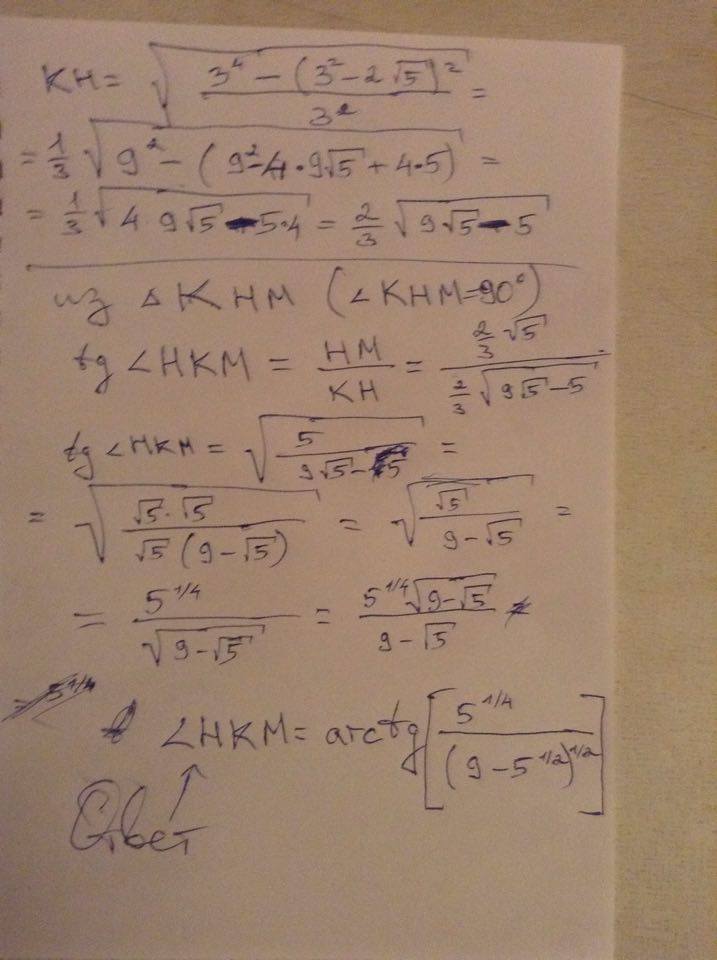 KH = √((3⁴ − (3² − 2√5)²)/3²) =
= 1/3 √(9² − (9² − 4·9√5 + 4·5)) =
= 1/3 √(4 9√5 − 5·4) = 2/3 √(9√5 − 5)
из △KHM (∠KHM = 90°)
tg ∠HKM = HM/KH = (2/3 √5)/(2/3 √(9√5 − 5))
tg ∠HKM = √(5/(9√5 − 5)) =
= √((√5·√5)/(√5(9 − √5))) = √(√5/(9 − √5)) =
= 5^1/4/√(9 − √5) = (5^1/4 √(9 − √5))/(9 − √5)
∠HKM = arctg[5^1/4/(9 − 5^1/2)^1/2]
Ответ